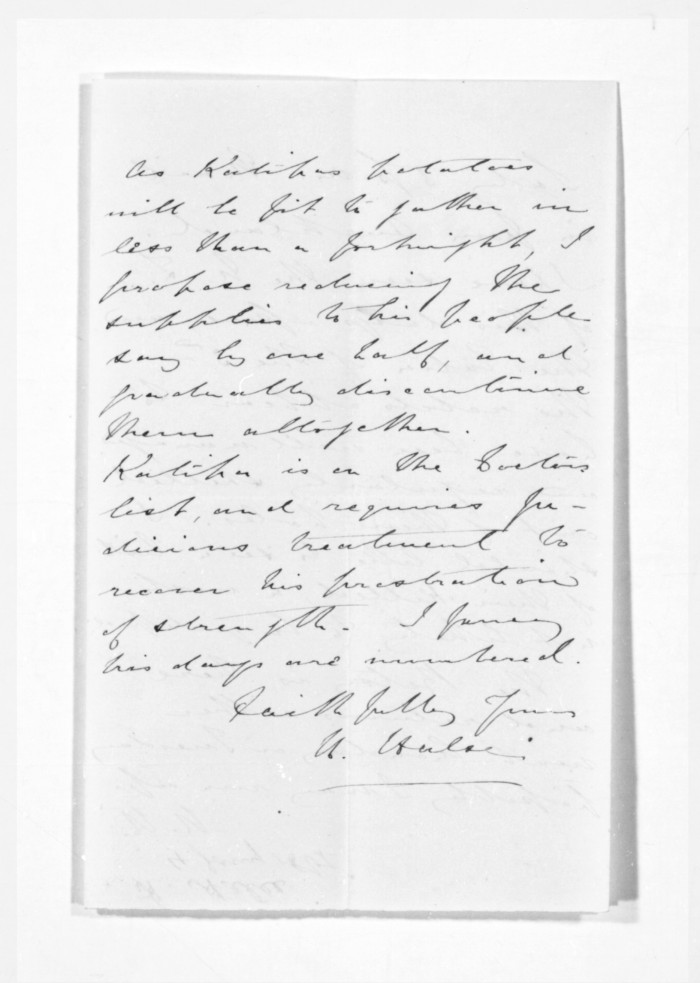 As Katihas potatoes
will be fit to gather in
less than a fortnight, I
propose reducing the
supplies to his people
say by one half, and
gradually discontinue
them altogether.
Katiha is on the Doctors
list, and requires ju-
dicious treatment to
recover his prostration
of strength. I fancy
his days are numbered.
Faithfully Yours